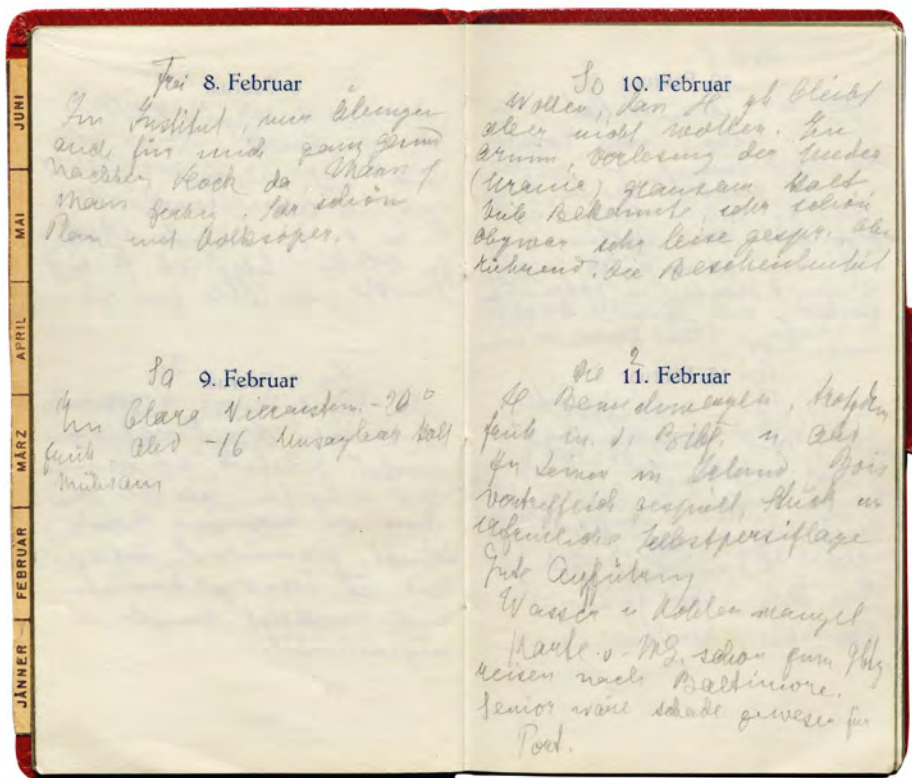 JUNI
MAI
APRIL
MÄRZ
FEBRUAR
JÄNNER
Frei
8. Februar
Im Institut, nur Übungen
auch für mich ganz
Nachher da, Mann
Mann schön
Plan mit Volksoper.
Sa
9. Februar
In Clara -20°
früh, Abd -16 Unsagbar kalt
Mühsam
So
10. Februar
Wollen, H. gb bleibt
aber nicht wollen. In
Vorlesung der
(Urania) grausam kalt
Viele Bekannte, sehr schön
obzwar sehr leise gespr. aber
rührend. die Bescheidenheit
Die
11. Februar
H trotzdem
früh in d. Bibl. u Abd
In Leiner in Urlaub. Bois
vortrefflich gespielt, Stück
Selbstpersiflage
Gute Aufführung
Wasser u Kohlen mangel
Karte v. MG. schon zum
reisen nach Baltimore.
Senior wäre schade gewesen für
Port.